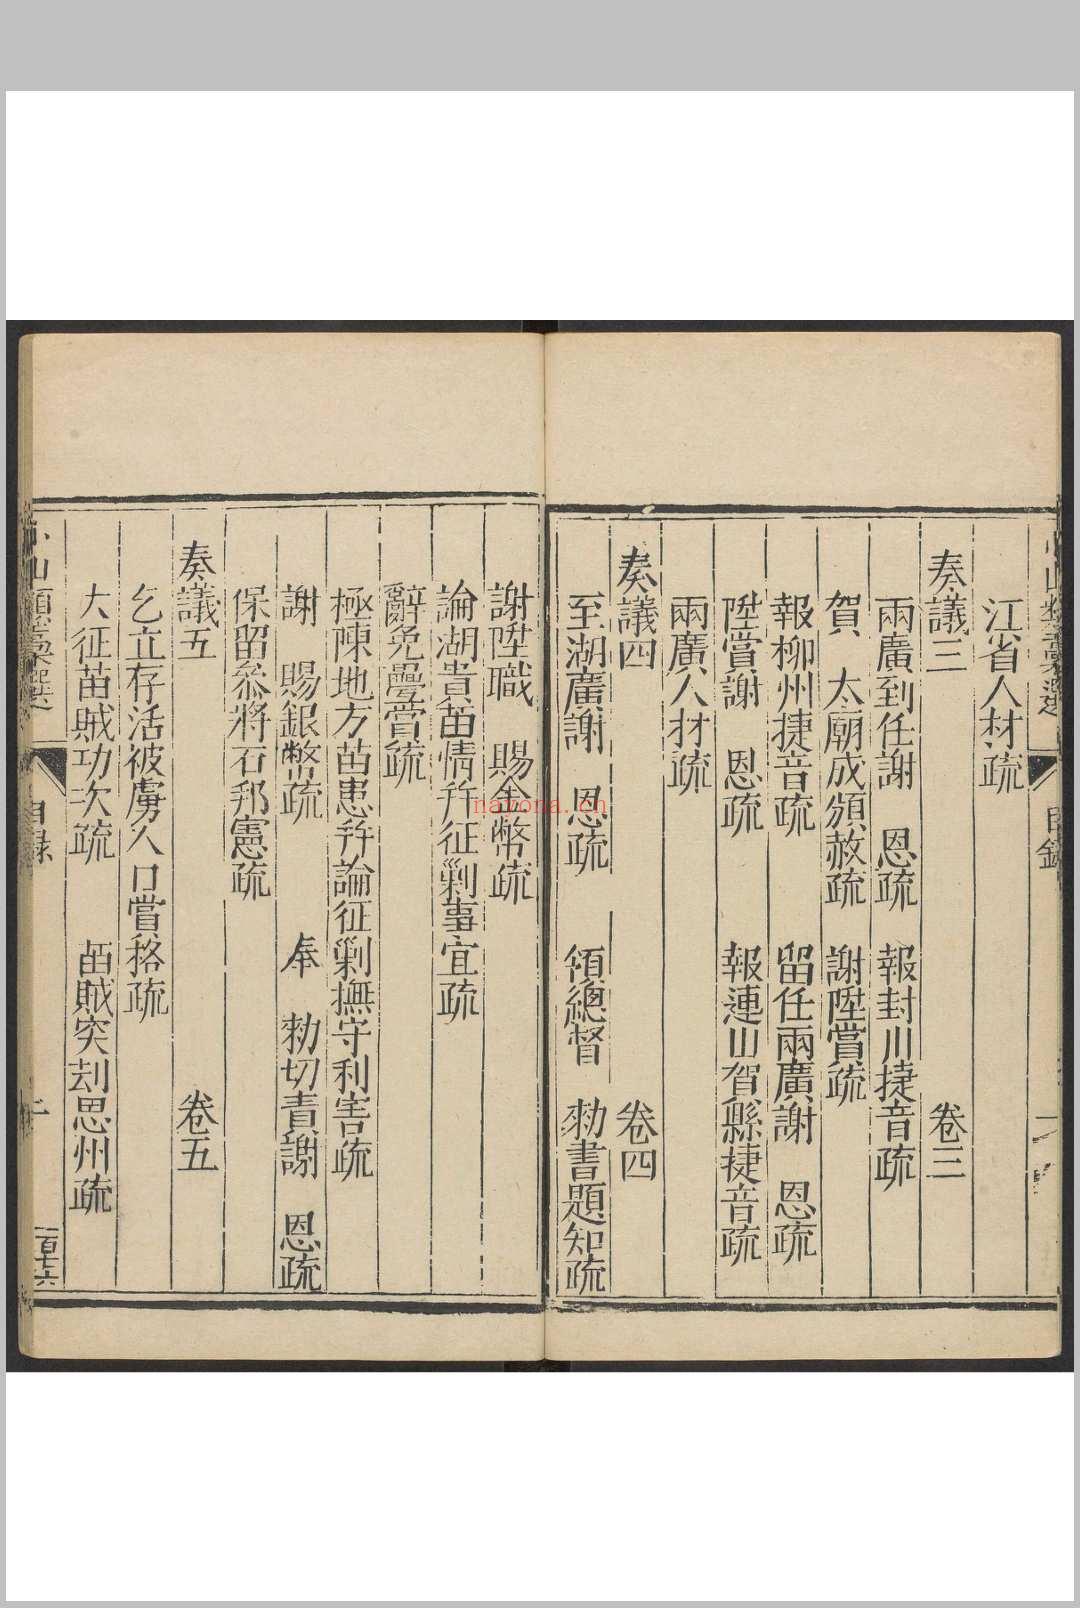 江省人材疏
奏議三 卷三
兩廣到任謝 恩疏 報封川捷音疏
賀 太廟成頒赦疏 謝陞賞疏
報柳州捷音疏 留任兩廣謝 恩疏
陞賞謝 恩疏 報連山賀縣捷音疏
兩廣人材疏
奏議四 卷四
至湖廣謝 恩疏 領總督 勑書題知疏
謝陞職 賜金幣疏
論湖貴苗情并征剿事宜疏
辭免疊賞疏
極陳地方苗患并論征剿撫守利害疏
謝 賜銀幣疏 奉 勑切責謝 恩疏
保留叅將石邦憲疏
奏議五 卷五
乞立存活被虜人口賞格疏
大征苗賊功次疏 苗賊突刦思州疏
目録
二
一百七六
nayona.cn